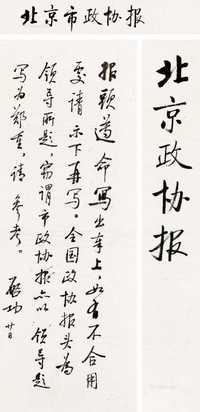 北京市政协报
北京政协报
报头遵命写出奉上，如有不合用
处请示下再写。全国政协报头为
领导所题，窃谓市政协报亦以领导题
写为郑重，请参考。
启功 廿日